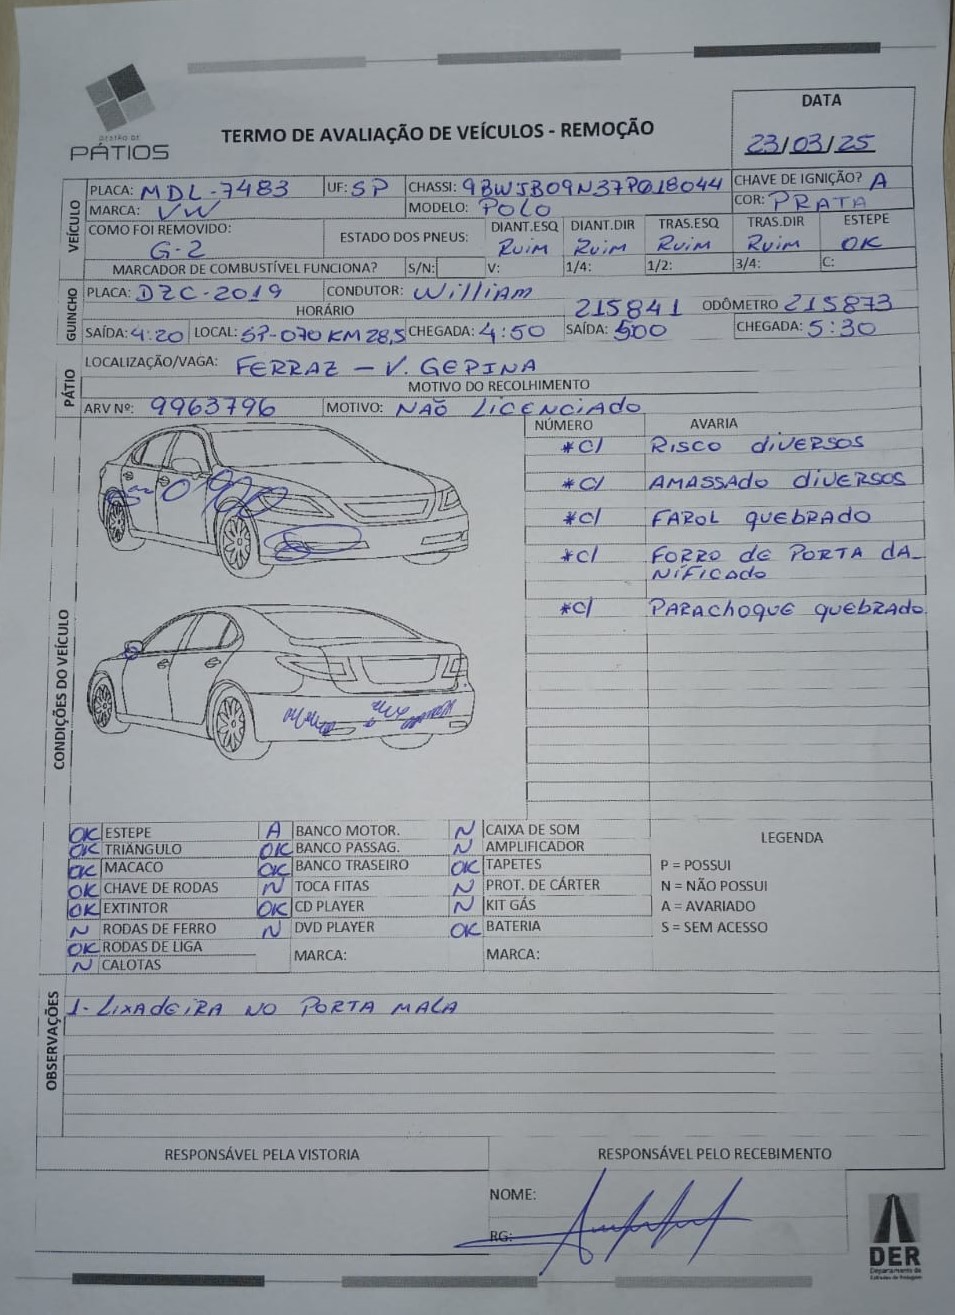 GESTÃO DE
PÁTIOS
TERMO DE AVALIAÇÃO DE VEÍCULOS - REMOÇÃO
DATA
23/03/25
VEÍCULO
PLACA: MDL-7483 UF: SP CHASSI: 9BWJB09N37P018044 CHAVE DE IGNIÇÃO? A
MARCA: VW MODELO: POLO COR: PRATA
COMO FOI REMOVIDO: G-2 ESTADO DOS PNEUS: DIANT.ESQ Ruim DIANT.DIR Ruim TRAS.ESQ Ruim TRAS.DIR Ruim ESTEPE OK
MARCADOR DE COMBUSTÍVEL FUNCIONA? S/N: V: 1/4: 1/2: 3/4: C:
GUINCHO
PLACA: DZC-2019 CONDUTOR: William
HORÁRIO 215841 ODÔMETRO 215873
SAÍDA: 4:20 LOCAL: SP-070 KM 28,5 CHEGADA: 4:50 SAÍDA: 500 CHEGADA: 5:30
PÁTIO
LOCALIZAÇÃO/VAGA: FERRAZ - V. GEPINA
MOTIVO DO RECOLHIMENTO
ARV Nº: 9963796 MOTIVO: NÃO LICENCIADO
CONDIÇÕES DO VEÍCULO
NÚMERO AVARIA
*C/ RISCO diVERSOS
*C/ AMASSADO diVERSOS
*C/ FAROL QUEBRADO
*C/ FORRO de PORTA dA_
NIFICADO
*C/ PARACHOQUE QUEBRADO
OK ESTEPE A BANCO MOTOR. N CAIXA DE SOM LEGENDA
OK TRIÂNGULO OK BANCO PASSAG. N AMPLIFICADOR
OK MACACO OK BANCO TRASEIRO OK TAPETES P = POSSUI
OK CHAVE DE RODAS N TOCA FITAS N PROT. DE CÁRTER N = NÃO POSSUI
OK EXTINTOR OK CD PLAYER N KIT GÁS A = AVARIADO
N RODAS DE FERRO N DVD PLAYER OK BATERIA S = SEM ACESSO
OK RODAS DE LIGA MARCA: MARCA:
N CALOTAS
OBSERVAÇÕES
1- LIXADEIRA NO PORTA MALA
RESPONSÁVEL PELA VISTORIA RESPONSÁVEL PELO RECEBIMENTO
NOME:
RG:
DER
Departamento de
Estradas de Rodagem